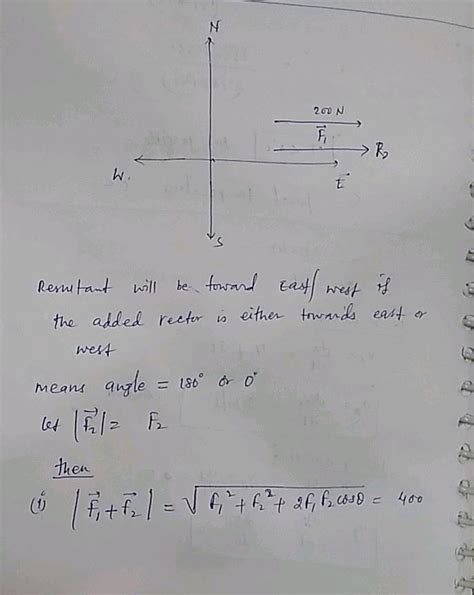 N
200 N
F⃗₁
R₂
W.
E
S
Resultant will be toward East/west if
the added vector is either towards east or
west
means angle = 180° or 0°
let |F⃗₂| = F₂
then
(i) |F⃗₁ + F⃗₂| = √(F₁² + F₂² + 2F₁F₂cosθ) = 400